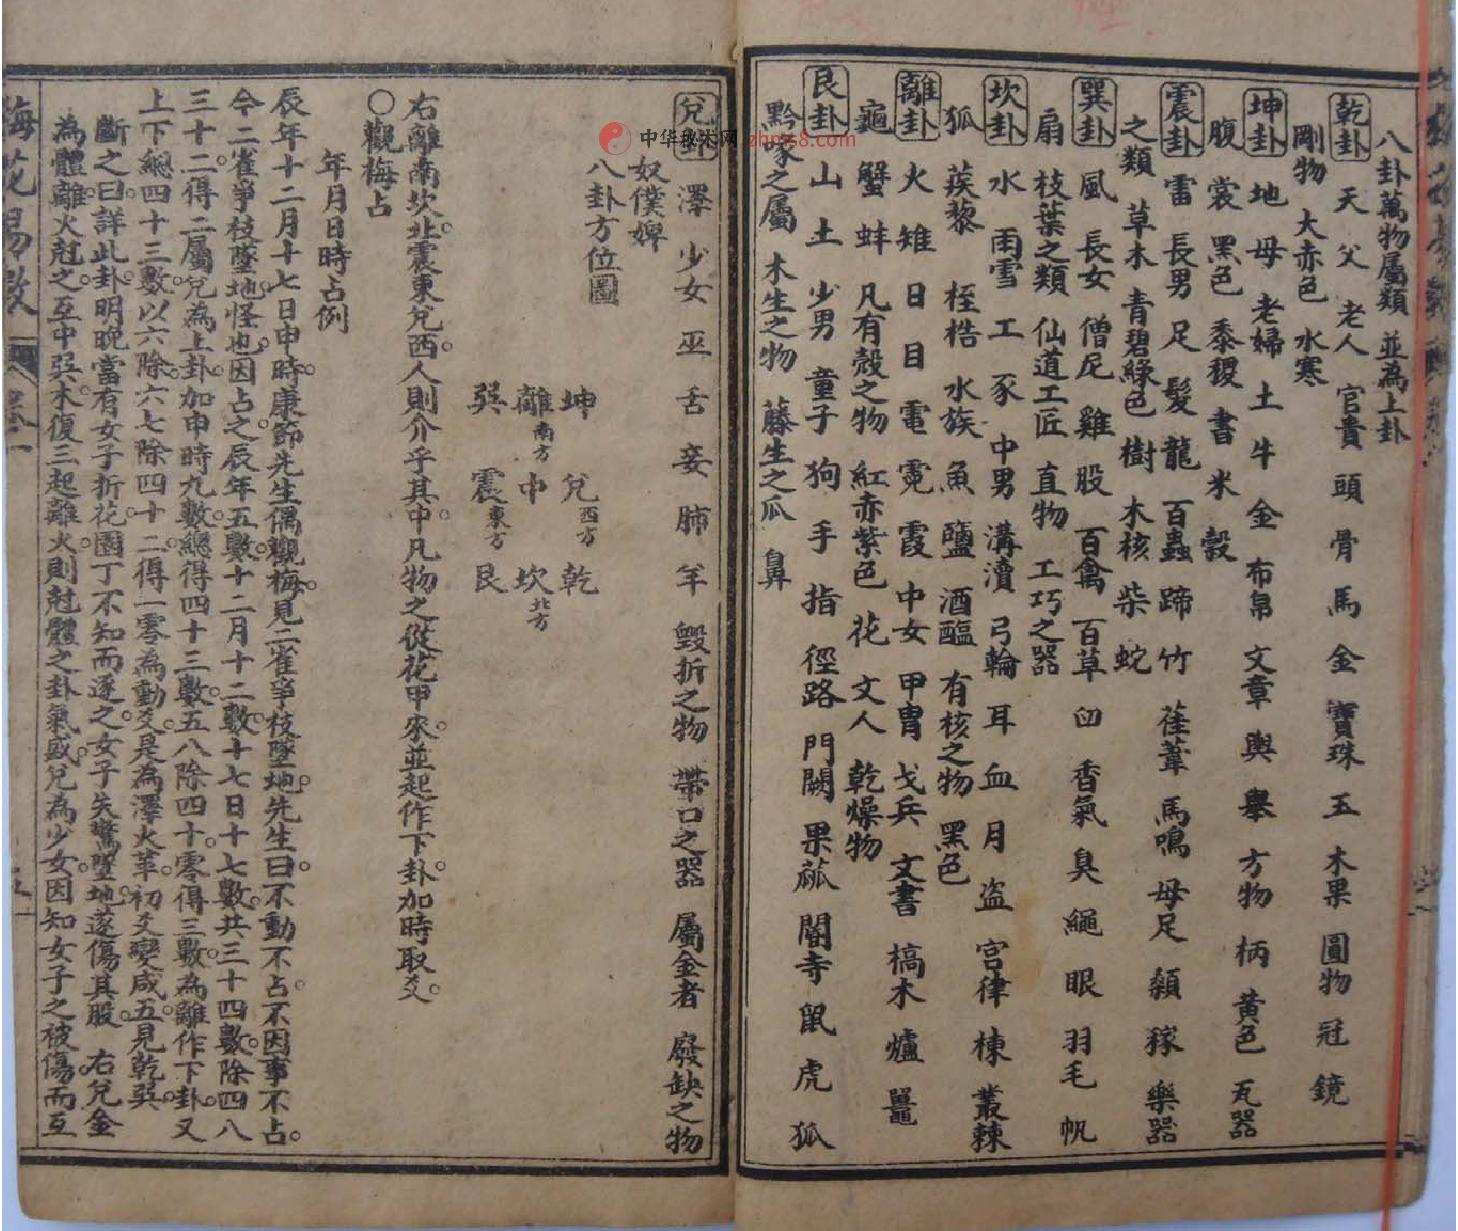 八卦萬物屬類 並為上卦
乾卦 天 父 老人 官貴 頭 骨 馬 金 寶珠 玉 木果 圓物 冠 鏡
剛物 大赤色 水寒
坤卦 地 母 老婦 土 牛 金 布帛 文章 輿 轝 方物 柄 黃色 瓦器
腹 裳 黑色 黍稷 書 米 穀
震卦 雷 長男 足 髮 龍 百蟲 蹄 竹 萑葦 馬鳴 母足 顙 稼 樂器
之類 草木 青碧綠色 樹 木核 柴 蛇
巽卦 風 長女 僧尼 雞 股 百禽 百草 臼 香氣 臭 繩 眼 羽毛 帆
扇 枝葉之類 仙道工匠 直物 工巧之器
坎卦 水 雨雪 工 豕 中男 溝瀆 弓輪 耳 血 月 盜 宮律 棟 叢棘
狐 蒺藜 桎梏 水族 魚 鹽 酒醢 有核之物 黑色
離卦 火 雉 日 目 電 霓 霞 中女 甲胄 戈兵 文書 槁木 爐 鼉
龜 蟹 蚌 凡有殼之物 紅赤紫色 花 文人 乾燥物
艮卦 山 土 少男 童子 狗 手 指 徑路 門闕 果蓏 閽寺 鼠 虎 狐
黔喙之屬 木生之物 藤生之瓜 鼻
兌卦 澤 少女 巫 舌 妾 肺 羊 毀折之物 帶口之器 屬金者 廢缺之物
奴僕婢
八卦方位圖
坤 兌西方 乾
離南方 中 坎北方
巽 震東方 艮
右離南坎北。震東兌西。人則介乎其中。凡物之從花甲來。並起作下卦。加時取爻。
○觀梅占
年月日時占例
辰年十二月十七日申時。康節先生偶觀梅。見二雀爭枝墜地。先生曰。不動不占。不因事不占。
今二雀爭枝墜地。怪也。因占之。辰年五數。十二月十二數。十七日十七數。共三十四數。除四八
三十二。得二屬兌為上卦。加申時九數。總得四十三數。五八除四十。零得三數。為離作下卦。又
上下總四十三數。以六除。六七除四十二。得一零為動爻。是為澤火革。初爻變咸。互見乾巽。
斷之曰。詳此卦。明晚當有女子折花。園丁不知而逐之。女子失驚墜地。遂傷其股。右兌金
為體。離火尅之。互中巽木。復三起離火。則尅體之卦氣盛。兌為少女。因知女子之被傷。而互
梅花易數
卷一
中华秘术网 zhms8.com